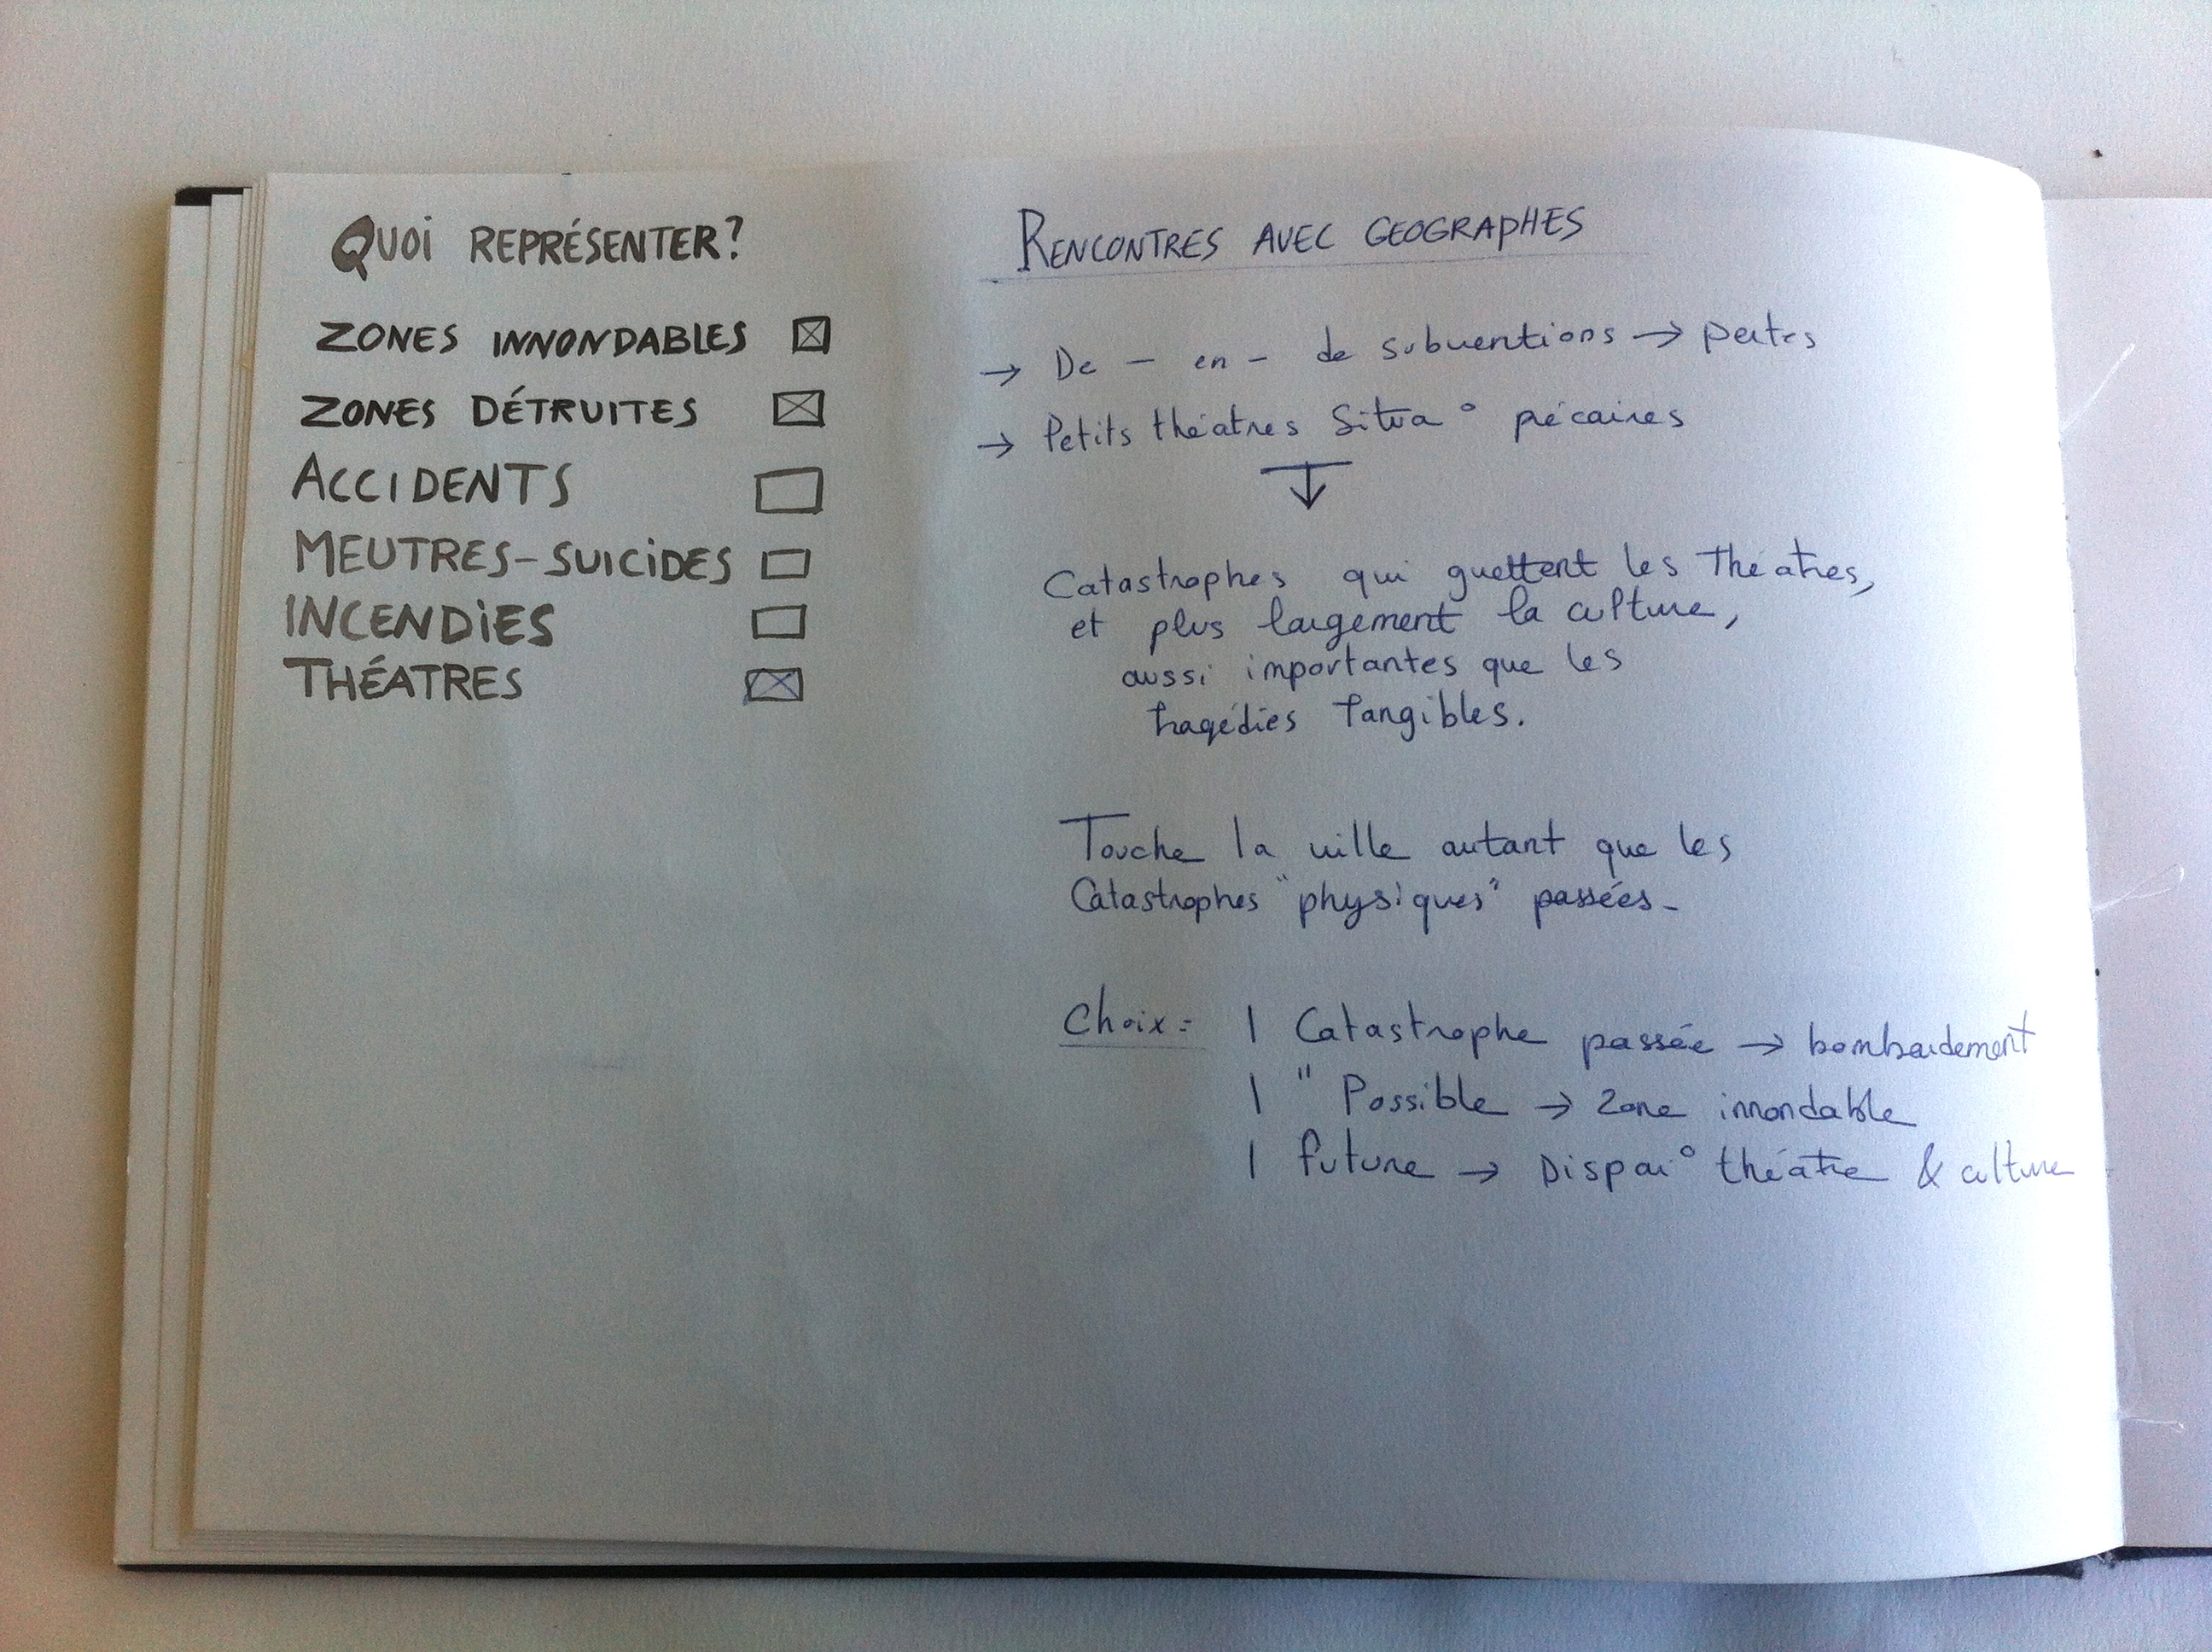 QUOI REPRÉSENTER?
ZONES INNONDABLES ☒
ZONES DÉTRUITES ☒
ACCIDENTS ☐
MEUTRES-SUICIDES ☐
INCENDIES ☐
THÉATRES ☒
RENCONTRES AVEC GEOGRAPHES
→ De - en - de subventions → pertes
→ Petits théatres Situa° précaires
↓
Catastrophes qui guettent les Théatres,
et plus largement la culture,
aussi importantes que les
tragédies tangibles.
Touche la ville autant que les
Catastrophes "physiques" passées-
Choix: 1 Catastrophe passée → bombardement
1 " Possible → Zone innondable
1 future → Dispar° théatre & culture